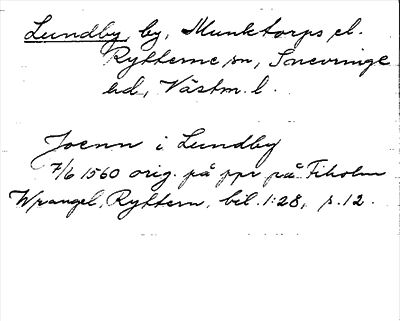 Lundby, by, Munktorps el.
Rytterne sn, Snevringe
hd, Västm. l.
Joenn i Lundby
7/6 1560 orig. på ppr på Fiholm
Wrangel, Ryttern, bil. 1:28, s. 12.